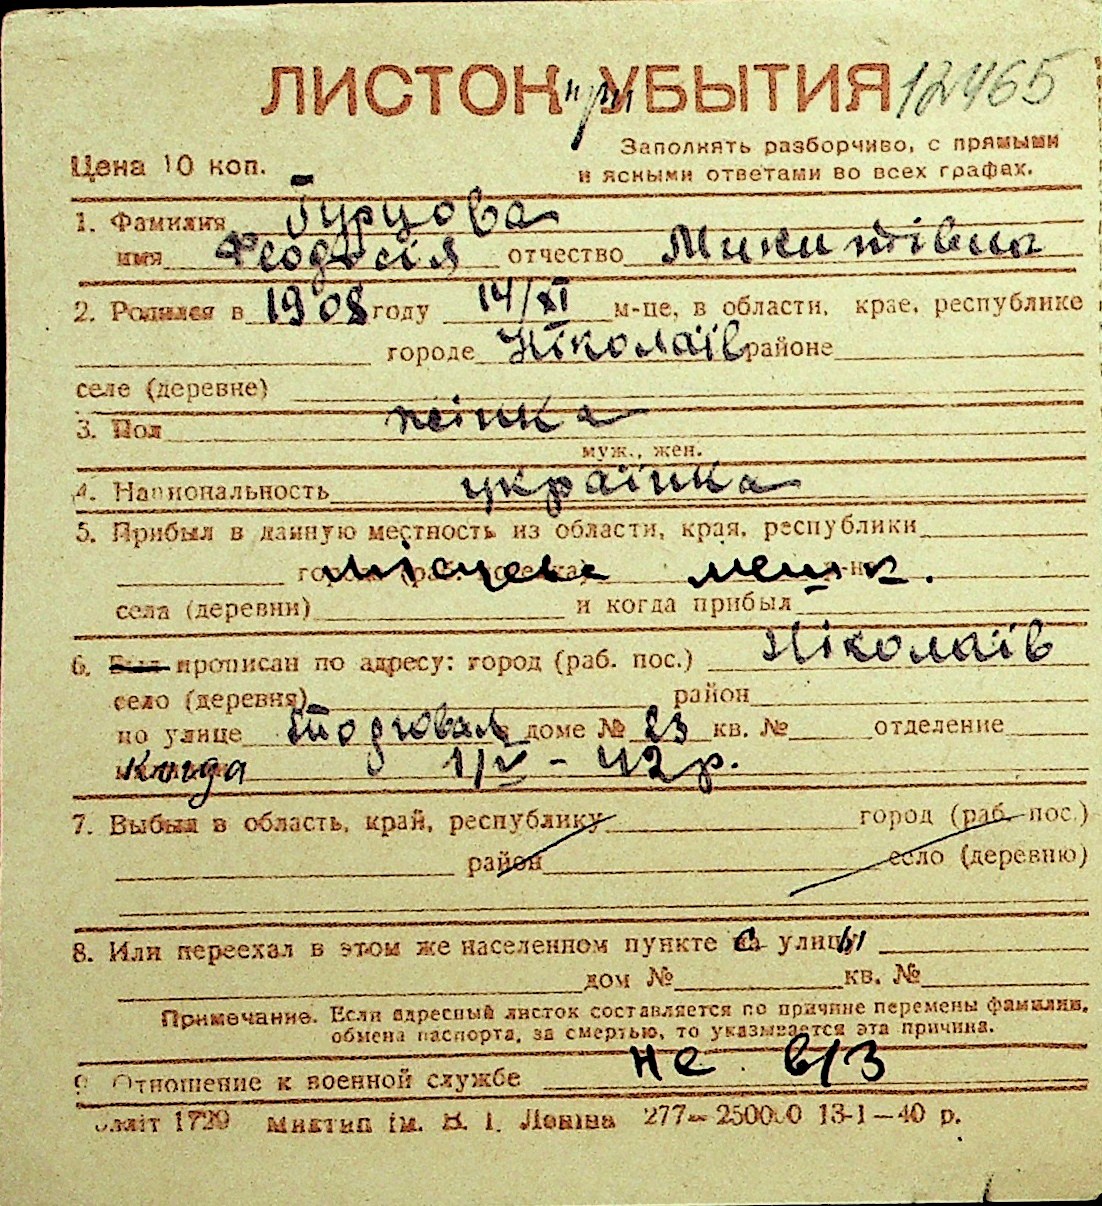 ЛИСТОК при УБЫТИЯ 12465
Цена 10 коп.
Заполнять разборчиво, с прямыми
и ясными ответами во всех графах.
1. Фамилия Гурцова
имя Феодосія отчество Микитівна
2. Родился в 1908 году 14/XI м-це, в области, крае, республике
городе Ніколаїв районе
селе (деревне)
3. Пол жінка
муж., жен.
4. Национальность українка
5. Прибыл в данную местность из области, края, республики
місцева мешк.
села (деревни) и когда прибыл
6. Был прописан по адресу: город (раб. пос.) Ніколаїв
село (деревня) район
по улице доме № 23 кв. № отделение
Когда 1/V - 42 р.
7. Выбыл в область, край, республику город (раб. пос.)
район село (деревню)
8. Или переехал в этом же населенном пункте с улицы
дом № кв. №
Примечание. Если адресный листок составляется по причине перемены фамилии,
обмена паспорта, за смертью, то указывается эта причина.
не в/з
9. Отношение к военной службе
1729 ім. В. І. Леніна 277—250000 13-1—40 р.